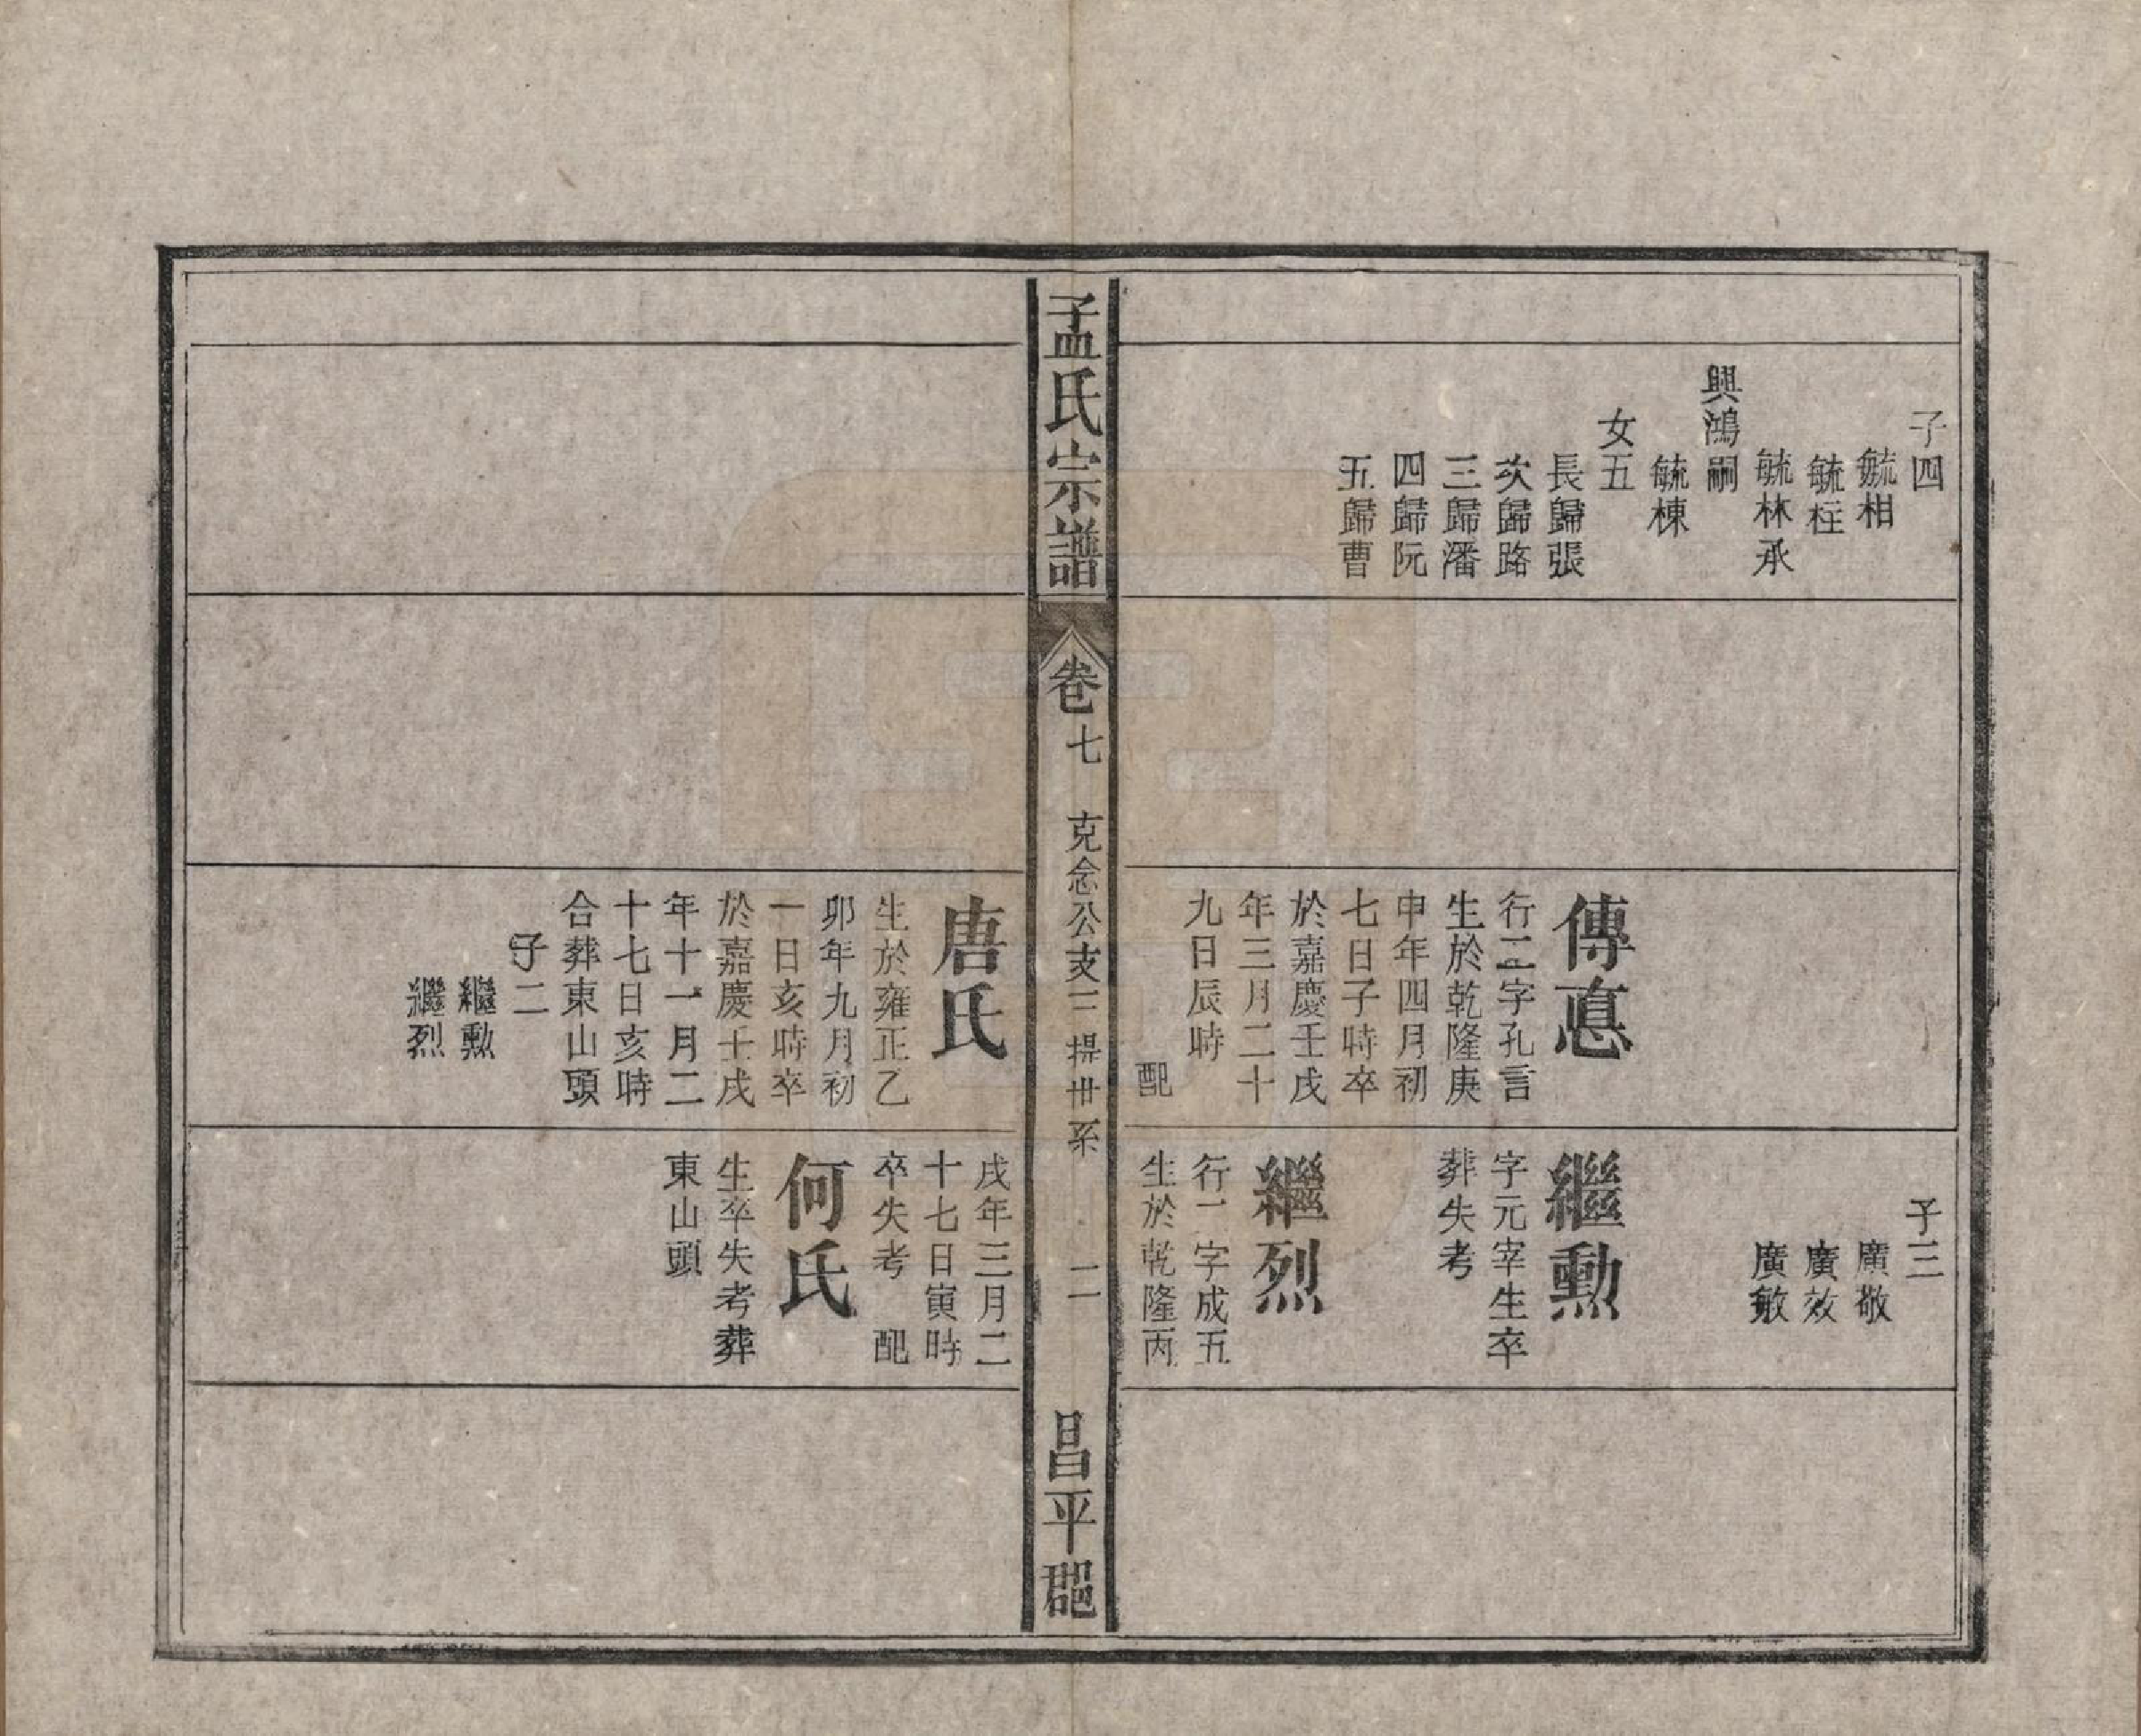 子四
毓相
毓柱
毓林承
興鴻嗣
毓棟
女五
長歸張
次歸路
三歸潘
四歸阮
五歸曹
傳悳
行二字孔言
生於乾隆庚
申年四月初
七日子時卒
於嘉慶壬戌
年三月二十
九日辰時
配
子三
廣敬
廣效
廣敏
繼勳
字元宰生卒
葬失考
繼烈
行二字成五
生於乾隆丙
孟氏宗譜
卷七
克念公支三提世系
二
昌平郡
唐氏
生於雍正乙
卯年九月初
一日亥時卒
於嘉慶壬戌
年十一月二
十七日亥時
合葬東山頭
子二
繼勳
繼烈
戌年三月二
十七日寅時
卒失考 配
何氏
生卒失考葬
東山頭